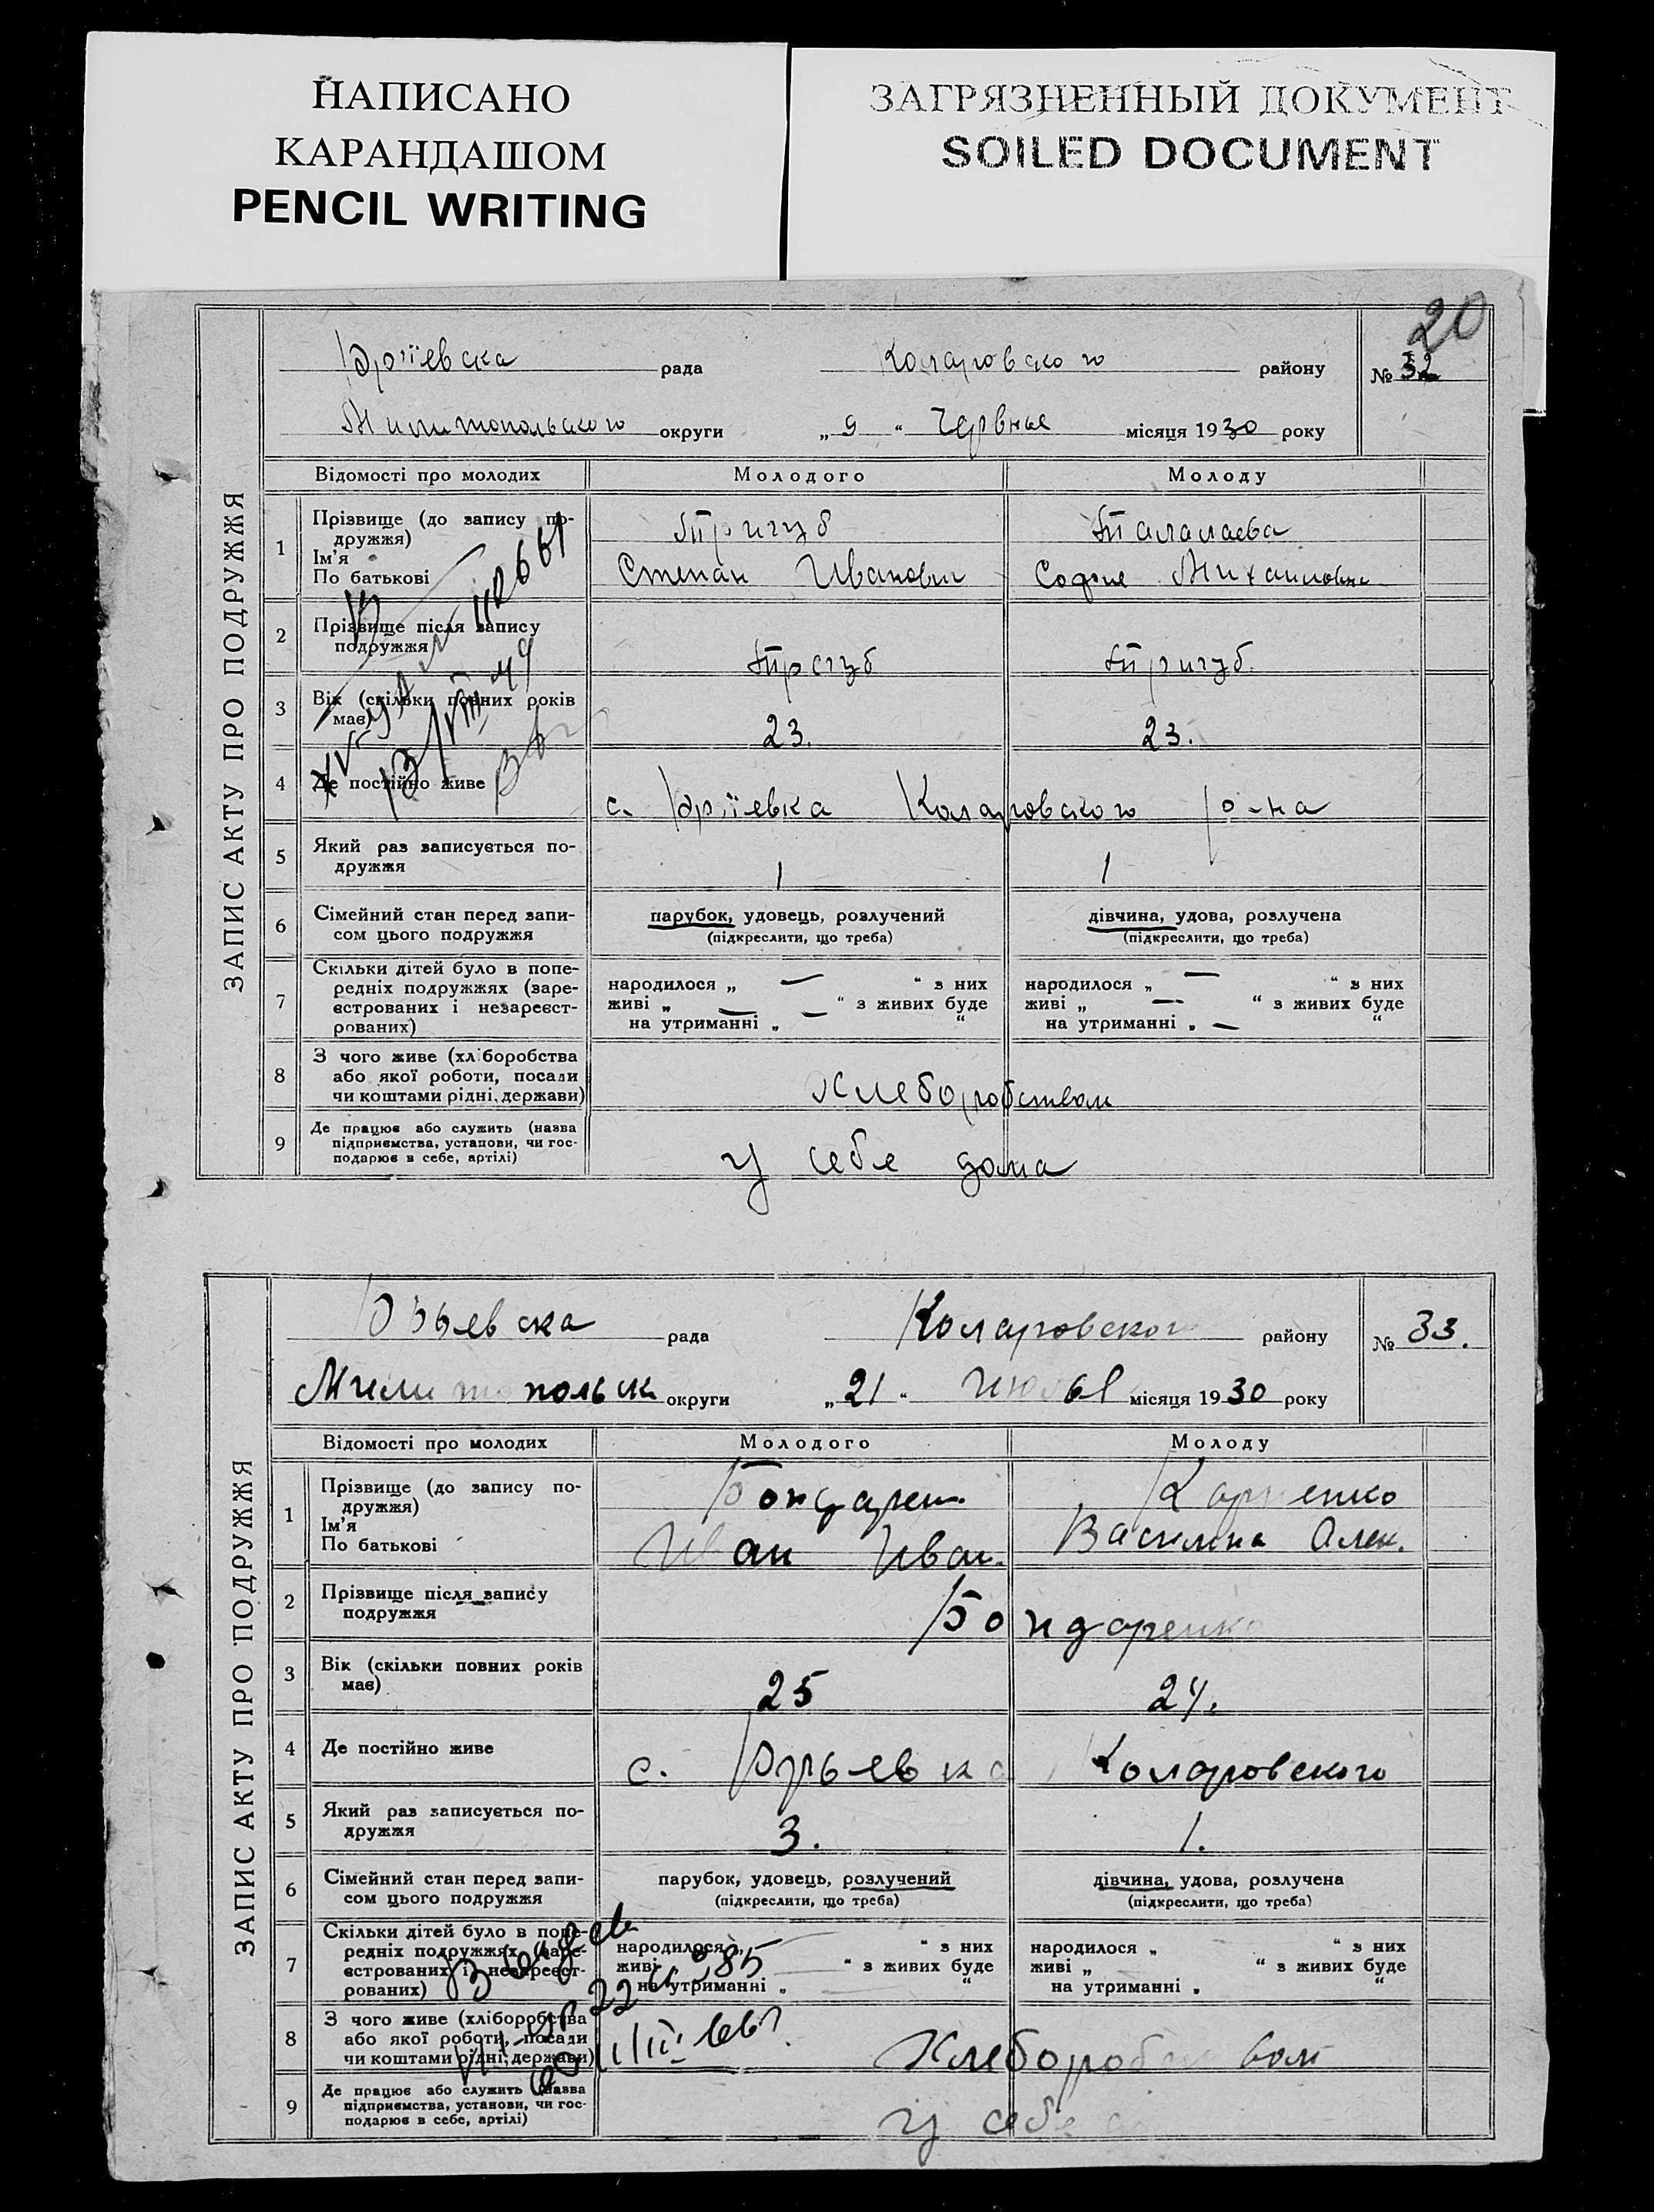 НАПИСАНО
КАРАНДАШОМ
PENCIL WRITING
ЗАГРЯЗНЕННЫЙ ДОКУМЕНТ
SOILED DOCUMENT
20
ЗАПИС АКТУ ПРО ПОДРУЖЖЯ
Юріївска рада Коларовского району № 32
Милитопольского округи „ 9 “ Червня місяця 1930 року
Відомості про молодих Молодого Молоду
1 Прізвище (до запису по-
дружжя)
Ім'я
По батькові
Тригуб Талалаева
Степан Иванович Софие Михайловна
2 Прізвище після запису
подружжя
Тригуб
3 Вік (скільки повних років
має)
23. 23.
4 Де постійно живе
с. Юріївка Коларовского р-на
5 Який раз записується по-
дружжя
1 1
6 Сімейний стан перед запи-
сом цього подружжя
парубок, удовець, розлучений дівчина, удова, розлучена
(підкреслити, що треба) (підкреслити, що треба)
7 Скільки дітей було в попе-
редніх подружжях (заре-
єстрованих і незареєст-
рованих)
народилося „ — “ з них народилося „ — “ з них
живі „ — “ з живих буде живі „ — “ з живих буде
на утриманні „ — “ на утриманні „ — “
8 З чого живе (хліборобства
або якої роботи, посади
чи коштами рідні, держави)
Хлеборобством
9 Де працює або служить (назва
підприємства, установи, чи гос-
подарює в себе, артілі)
у себе дома
ЗАПИС АКТУ ПРО ПОДРУЖЖЯ
рада Коларовского району № 33.
Мелитопольск округи „ 21 “ місяця 1930 року
Відомості про молодих Молодого Молоду
1 Прізвище (до запису по-
дружжя)
Ім'я
По батькові
Бондарен.
Иван Иван. Василина Алек.
2 Прізвище після запису
подружжя
Бондаренко
3 Вік (скільки повних років
має)
25 24.
4 Де постійно живе
с. Юрьевка Коларовского
5 Який раз записується по-
дружжя
3. 1.
6 Сімейний стан перед запи-
сом цього подружжя
парубок, удовець, розлучений дівчина, удова, розлучена
(підкреслити, що треба) (підкреслити, що треба)
7 Скільки дітей було в попе-
редніх подружжях (заре-
єстрованих і незареєст-
рованих)
народилося „ “ з них народилося „ “ з них
живі „ “ з живих буде живі „ “ з живих буде
на утриманні „ “ на утриманні „ “
8 З чого живе (хліборобства
або якої роботи, посади
чи коштами рідні, держави)
Хлеборобством
9 Де працює або служить (назва
підприємства, установи, чи гос-
подарює в себе, артілі)
у себе